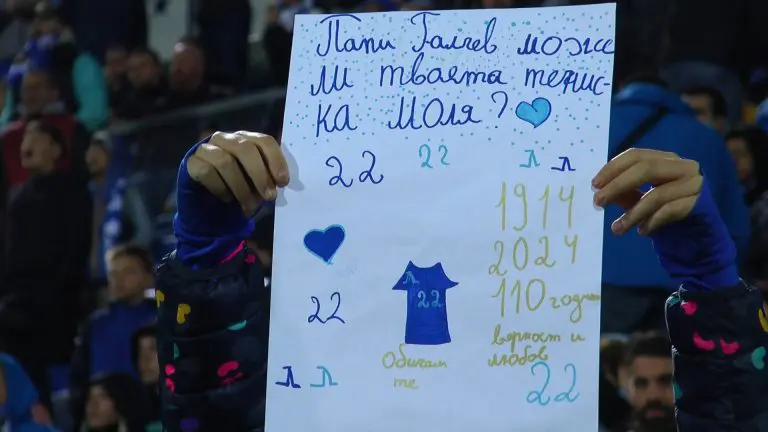 Папи Галчев може
ли твоята тенис-
ка Моля?
22 22 Л Л
1914
2024
110 години
вярност и
любов
22
Л
22
Обичам
те
22
Л Л